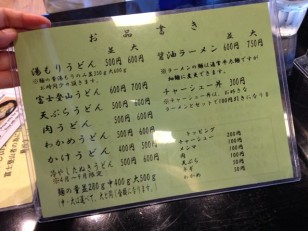 お品書き
並 大
湯もりうどん 500円 600円
富士登山うどん 600円 700円
天ぷらうどん 500円 600円
肉うどん 500円 600円
わかめうどん 500円 600円
かけうどん 400円 500円
冷やしたぬきうどん 500円 600円
麺の量並280g 中400g 大500g
並 大
醤油ラーメン 600円 750円
※ラーメンの麺は通常中太麺ですが
細麺に変更できます。
チャーシュー丼 300円
トッピング
チャーシュー
メンマ
肉
天ぷら
ネギ
わかめ